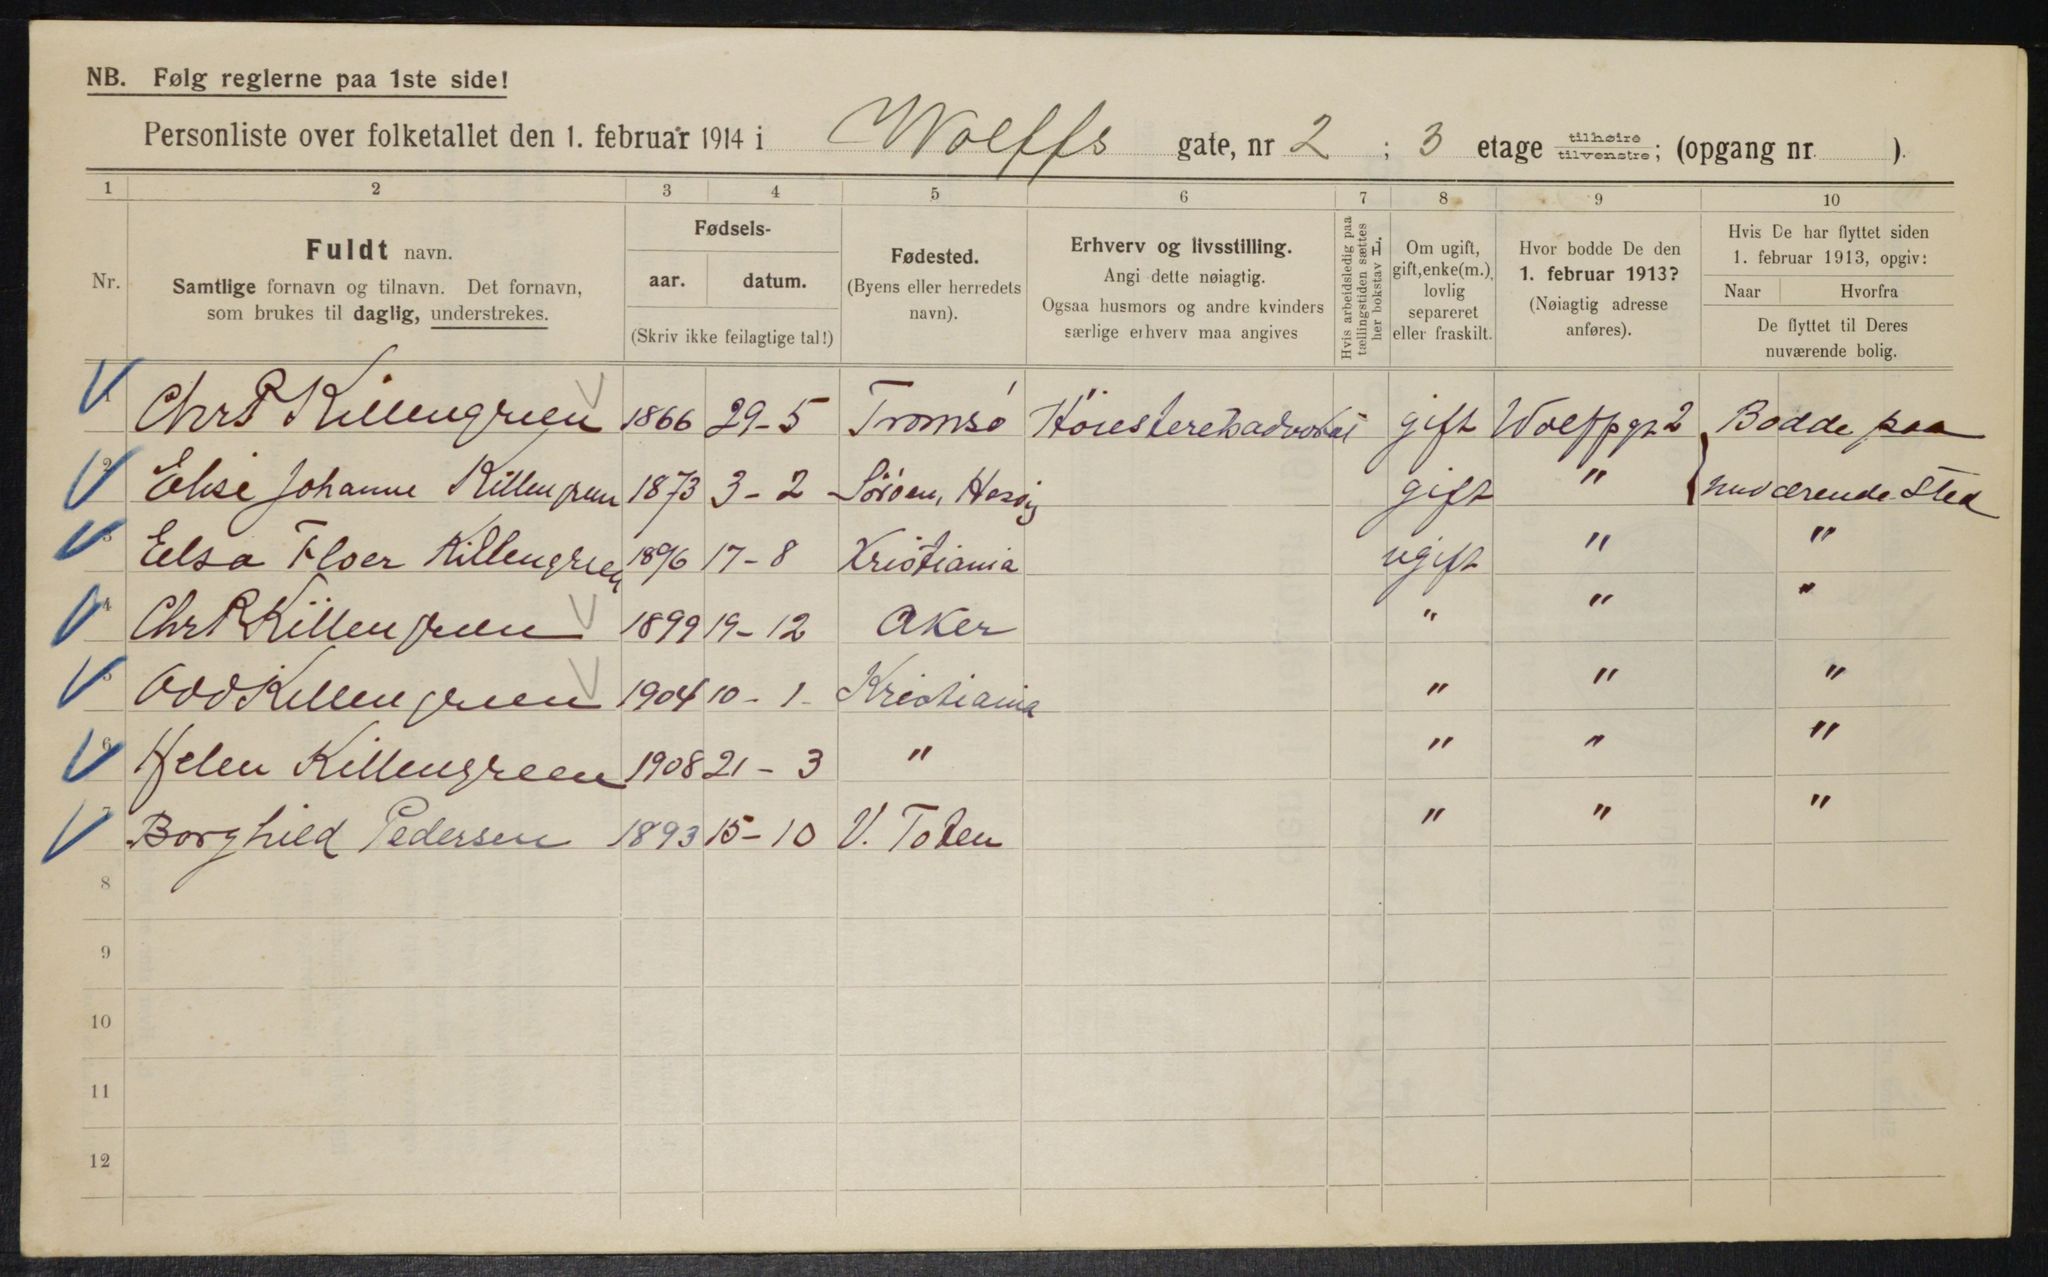 NB. Følg reglerne paa 1ste side!
Personliste over folketallet den 1. februar 1914 i Wolffs gate, nr 2 ; 3 etage tilhøire tilvenstre; (opgang nr. ).
1 2 3 4 5 6 7 8 9 10
Nr.
Fuldt navn.
Samtlige fornavn og tilnavn. Det fornavn,
som brukes til daglig, understrekes.
Fødsels-
aar. datum.
(Skriv ikke feilagtige tal!)
Fødested.
(Byens eller herredets
navn).
Erhverv og livsstilling.
Angi dette nøiagtig.
Ogsaa husmors og andre kvinders
særlige erhverv maa angives
Hvis arbeidsledig paa
tællingstiden sættes
her bokstav L.
Om ugift,
gift, enke(m.),
lovlig
separeret
eller fraskilt.
Hvor bodde De den
1. februar 1913?
(Nøiagtig adresse
anføres).
Hvis De har flyttet siden
1. februar 1913, opgiv:
Naar Hvorfra
De flyttet til Deres
nuværende bolig.
1 Chr P Killengreen 1866 29-5 Tromsø Høiesteretsadvokat gift Wolffsgt 2 Bodde paa
2 Elise Johanne Killengreen 1873 3-2 Sørøen, gift " nuværende Sted
3 Elsa Floer Killengreen 1896 17-8 Kristiania ugift " "
4 Chr P Killengreen 1899 19-12 Aker " " "
5 Odd Killengreen 1904 10-1- Kristiania " " "
6 Helen Killengreen 1908 21-3 " " " "
7 Borghild Pedersen 1893 15-10 V. Toten " " "
8
9
10
11
12